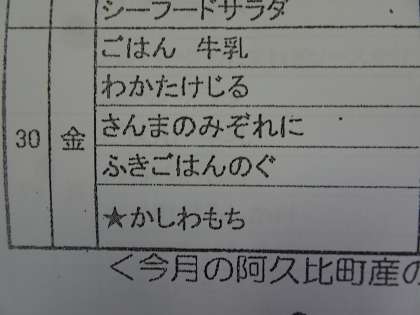 シーフードサラダ
ごはん 牛乳
わかたけじる
30 金 さんまのみぞれに
ふきごはんのぐ
★かしわもち
<今月の阿久比町産の